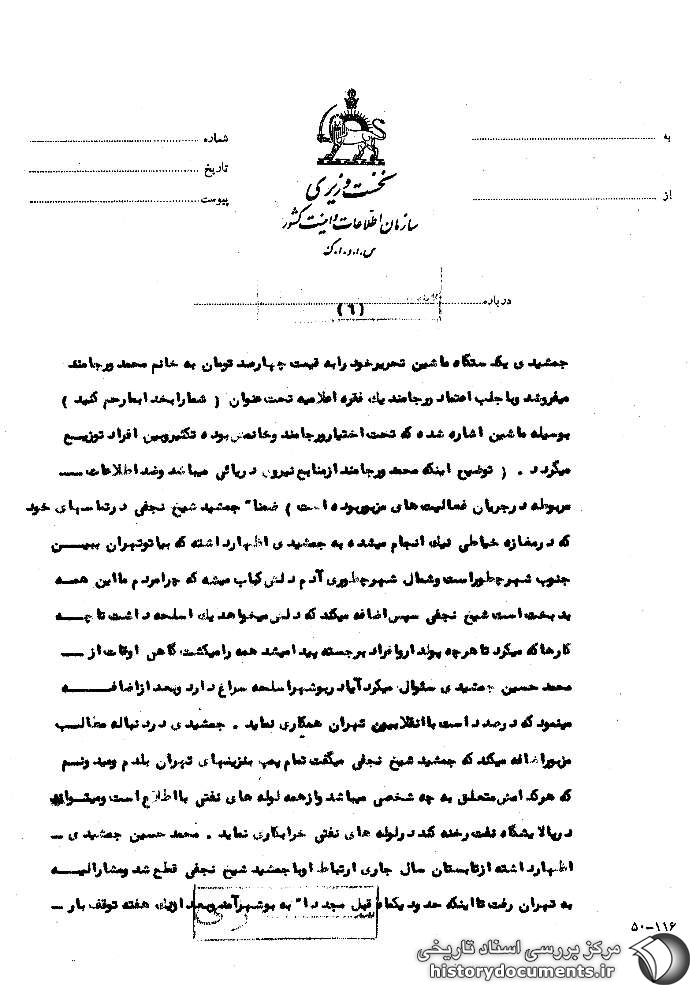 به
شماره
تاریخ
از
پیوست
نخست وزیری
سازمان اطلاعات و امنیت کشور
س.ا.و.ا.ک
درباره
(۶)
جمشیدی یکدستگاه ماشین تحریر خود را به قیمت چهارصد تومان به خانم محمد ورجامند
میفروشد وبا جلب اعتماد ورجامند یک فقره اعلامیه تحت عنوان ( شما را بخدا بما رحم کنید )
بوسیله ماشین اشاره شده که تحت اختیار ورجامند وخانمش بوده تکثیر وبین افراد توزیع
میگردد . ( توضیح اینکه محمد ورجامند از منابع نیروی دریائی میباشد وضد اطلاعات ــ
مربوطه در جریان فعالیت های مزبور بوده است ) ضمنا" جمشید شیخ نجفی در تماسهای خود
که در مغازه خیاطی نیک انجام میشده به جمشیدی اظهار داشته که بیا تو تهران ببین
جنوب شهر چطور است وشمال شهر چطوری آدم دلش کباب میشه که چرا مردم ما این همه
بدبخت است شیخ نجفی سپس اضافه میکند که دلش میخواهد یک اسلحه داشت تا چه
کارها که میکرد تا هر چه پولدار وافراد برجسته پیدا میشد همه را میکشت گاهی اوقات از ــ
محمد حسین جمشیدی سئوال میکرد آیا در بوشهر اسلحه سراغ دارد وبعد از اضافه
مینمود که درصدد است با انقلابیون تهران همکاری نماید . جمشیدی در دنباله مطالب
مزبور اضافه میکند که جمشید شیخ نجفی میگفت تمام پمپ بنزینهای تهران بلدم ومیدونم
که هرکدامش متعلق به چه شخصی میباشد واز همه لوله های نفتی با اطلاع است ومیتواند
در پالایشگاه نفت رخنه کند در لوله های نفتی خرابکاری نماید . محمد حسین جمشیدی ــ
اظهار داشته از تابستان سال جاری ارتباط او با جمشید شیخ نجفی قطع شد ومشارالیه
به تهران رفت تا اینکه حدود یکماه قبل مجددا" به بوشهر آمد وبعد از یک هفته توقف بار ــ
۵۰-۱۱۶
مرکز بررسی اسناد تاریخی
historydocuments.ir